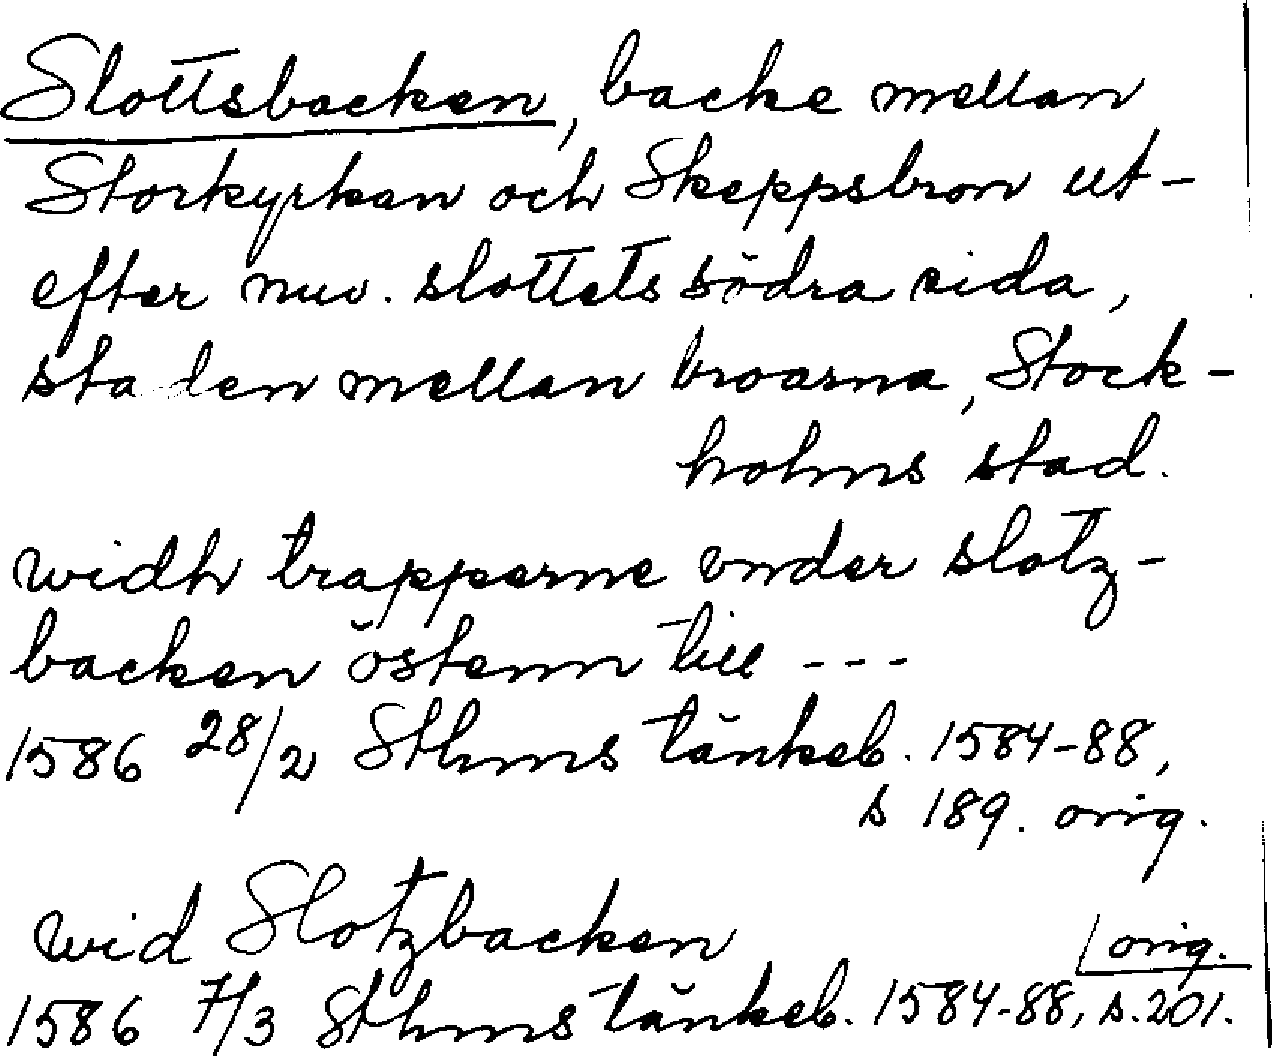 Slottsbacken, backe mellan
Storkyrkan och Skeppsbron ut-
efter nuv. slottets södra sida,
staden mellan broarna, Stock-
holms stad.
widh trapperne vnder slotz-
backen östenn till ---
1586 28/2 Sthms tänkeb. 1584-88,
s 189. orig.
wid Slotzbacken
orig.
1586 7/3 Sthms tänkeb. 1584-88, s. 201.